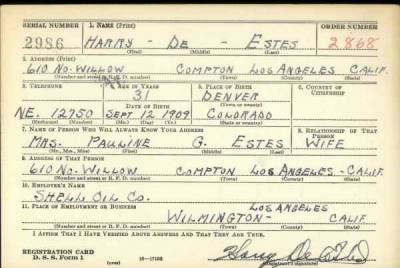 SERIAL NUMBER 1. NAME (Print) ORDER NUMBER
2986 HARRY - DE - ESTES 2868
(First) (Middle) (Last)
2. ADDRESS (Print)
610 NO. WILLOW COMPTON LOS ANGELES CALIF.
(Number and street or R. F. D. number) (Town) (County) (State)
3. TELEPHONE 4. AGE IN YEARS 5. PLACE OF BIRTH 6. COUNTRY OF CITIZENSHIP
31 DENVER
DATE OF BIRTH (Town or county)
NE. 12750 SEPT 12 1909 COLORADO
(Exchange) (Number) (Mo.) (Day) (Yr.) (State or country)
7. NAME OF PERSON WHO WILL ALWAYS KNOW YOUR ADDRESS 8. RELATIONSHIP OF THAT PERSON
MRS. PAULINE G. ESTES WIFE
(Mr., Mrs., Miss) (First) (Middle) (Last)
9. ADDRESS OF THAT PERSON
610 NO. WILLOW COMPTON LOS ANGELES - CALIF.
(Number and street or R. F. D. number) (Town) (County) (State)
10. EMPLOYER'S NAME
SHELL OIL CO.
11. PLACE OF EMPLOYMENT OR BUSINESS LOS ANGELES
WILMINGTON - CALIF
(Number and street or R. F. D. number) (Town) (County) (State)
I AFFIRM THAT I HAVE VERIFIED ABOVE ANSWERS AND THAT THEY ARE TRUE.
REGISTRATION CARD
D. S. S. Form 1 (over) Harry De Estes
(Registrant's signature)